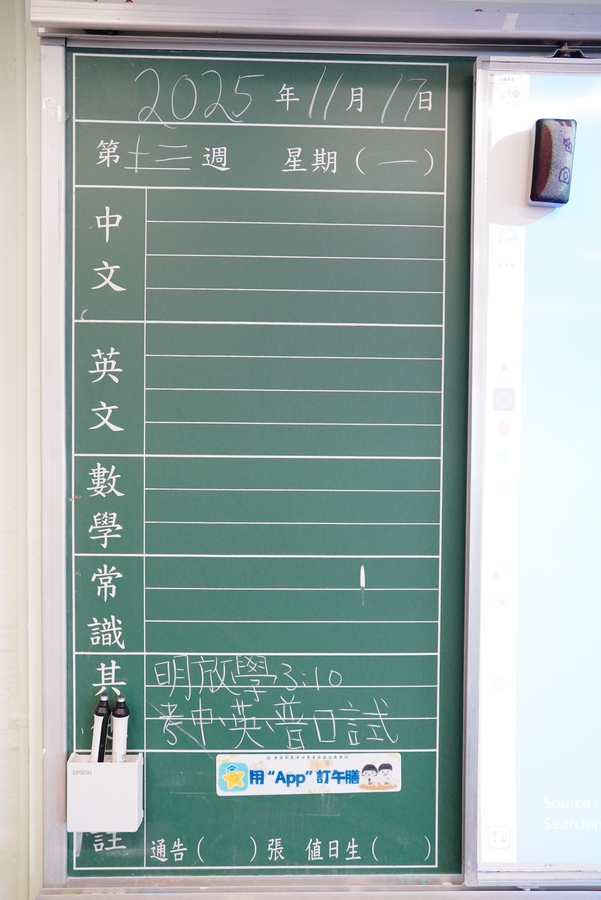 2025年11月17日
第十三週 星期（一）
中文
英文
數學
常識
其
明放學3:10
考中、英、普口試
EPSON
用“App”訂午膳
註
通告（ ）張 值日生（ ）
Source :
Searchin